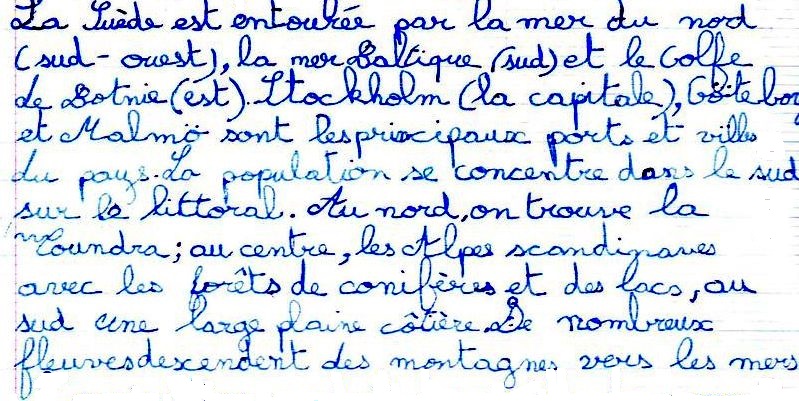 La Suède est entourée par la mer du nord
(sud-ouest), la mer Baltique (sud) et le Golfe
de Botnie (est). Stockholm (la capitale), Götebor
et Malmö sont les principaux ports et villes
du pays. La population se concentre dans le sud
sur le littoral. Au nord, on trouve la
Toundra; au centre, les Alpes scandinaves
avec les forêts de conifères et des lacs, au
sud une large plaine côtière. De nombreux
fleuves descendent des montagnes vers les mers